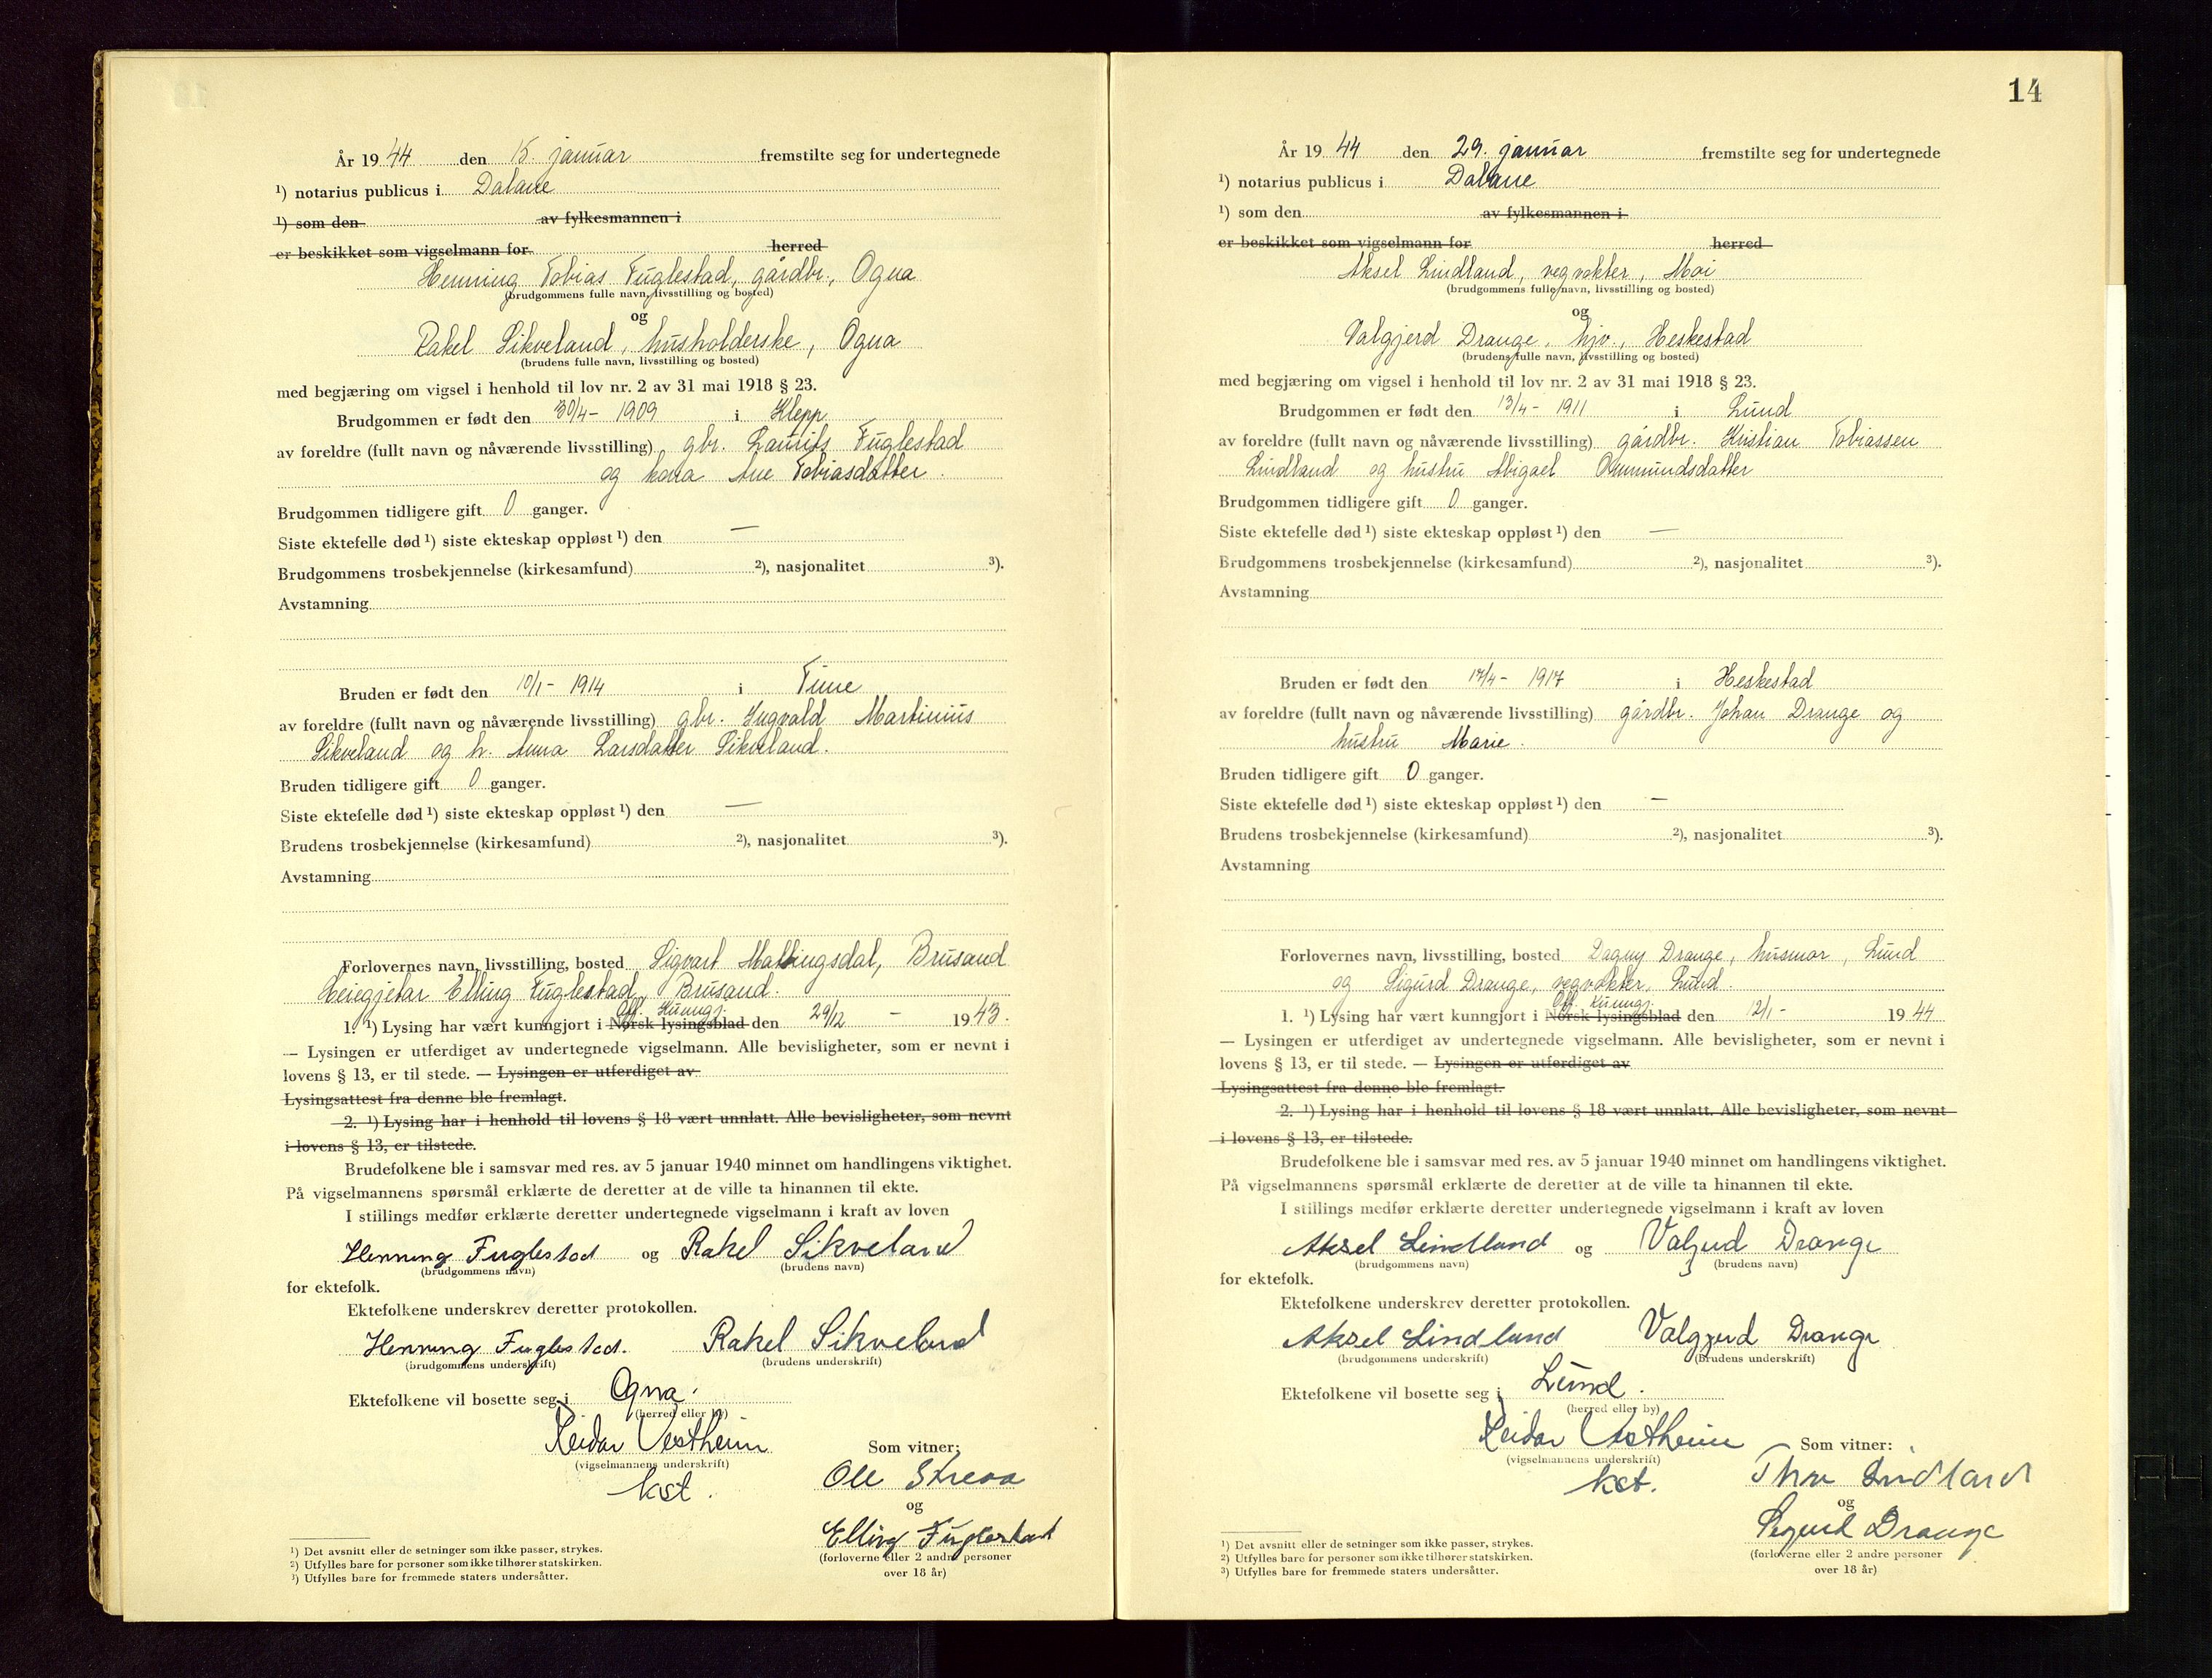 År 19 44 den 15. januar fremstilte seg for undertegnede
¹) notarius publicus i Dalane
¹) som den av fylkesmannen i
er beskikket som vigselmann for herred
Henning Tobias Fuglestad, gårdbr., Ogna
(brudgommens fulle navn, livsstilling og bosted)
og
Rakel Sikveland, husholderske, Ogna
(brudens fulle navn, livsstilling og bosted)
med begjæring om vigsel i henhold til lov nr. 2 av 31 mai 1918 § 23.
Brudgommen er født den 30/4 - 1909 i Klepp
av foreldre (fullt navn og nåværende livsstilling) gbr. Laurits Fuglestad
og kona Ane Tobiasdatter.
Brudgommen tidligere gift 0 ganger.
Siste ektefelle død ¹) siste ekteskap oppløst ¹) den —
Brudgommens trosbekjennelse (kirkesamfund) ²), nasjonalitet ³).
Avstamning
Bruden er født den 10/1 - 1914 i Time
av foreldre (fullt navn og nåværende livsstilling) gbr. Ingvald Martinius
Sikveland og h. Anna Larsdatter Sikveland.
Bruden tidligere gift 0 ganger.
Siste ektefelle død ¹) siste ekteskap oppløst ¹) den —
Brudens trosbekjennelse (kirkesamfund) ²), nasjonalitet ³).
Avstamning
Forlovernes navn, livsstilling, bosted Sigvart Mattingsdal, Brusand
Elling Fuglestad, Brusand.
Off. Kunngj.
1. ¹) Lysing har vært kunngjort i Norsk lysingsblad den 29/12 - 19 43.
— Lysingen er utferdiget av undertegnede vigselmann. Alle bevisligheter, som er nevnt i
lovens § 13, er til stede. — Lysingen er utferdiget av
Lysingsattest fra denne ble fremlagt.
2. ¹) Lysing har i henhold til lovens § 18 vært unnlatt. Alle bevisligheter, som nevnt
i lovens § 13, er tilstede.
Brudefolkene ble i samsvar med res. av 5 januar 1940 minnet om handlingens viktighet.
På vigselmannens spørsmål erklærte de deretter at de ville ta hinannen til ekte.
I stillings medfør erklærte deretter undertegnede vigselmann i kraft av loven
Henning Fuglestad og Rakel Sikveland
(brudgommens navn) (brudens navn)
for ektefolk.
Ektefolkene underskrev deretter protokollen.
Henning Fuglestad. Rakel Sikveland
(brudgommens underskrift) (brudens underskrift)
Ektefolkene vil bosette seg i Ogna.
(herred eller by)
Reidar Vestheim Som vitner:
(vigselmannens underskrift)
kst. Ole
og
Elling Fuglestad
(forloverne eller 2 andre personer
over 18 år)
¹) Det avsnitt eller de setninger som ikke passer, strykes.
²) Utfylles bare for personer som ikke tilhører statskirken.
³) Utfylles bare for fremmede staters undersåtter.
14
År 19 44 den 29. januar fremstilte seg for undertegnede
¹) notarius publicus i Dalane
¹) som den av fylkesmannen i
er beskikket som vigselmann for herred
Aksel Lindland, vegvokter, Moi
(brudgommens fulle navn, livsstilling og bosted)
og
Valgjerd Drange, hjv., Heskestad
(brudens fulle navn, livsstilling og bosted)
med begjæring om vigsel i henhold til lov nr. 2 av 31 mai 1918 § 23.
Brudgommen er født den 13/4 - 1911 i Lund
av foreldre (fullt navn og nåværende livsstilling) gårdbr. Kristian Tobiassen
Lindland og hustru Abigael Ommundsdatter
Brudgommen tidligere gift 0 ganger.
Siste ektefelle død ¹) siste ekteskap oppløst ¹) den —
Brudgommens trosbekjennelse (kirkesamfund) ²), nasjonalitet ³).
Avstamning
Bruden er født den 17/4 - 1917 i Heskestad
av foreldre (fullt navn og nåværende livsstilling) gårdbr. Johan Drange og
hustru Marie.
Bruden tidligere gift 0 ganger.
Siste ektefelle død ¹) siste ekteskap oppløst ¹) den —
Brudens trosbekjennelse (kirkesamfund) ²), nasjonalitet ³).
Avstamning
Forlovernes navn, livsstilling, bosted Dagny Drange, husmor, Lund
og Sigurd Drange, vegvokter, Lund.
Off. Kunngj.
1. ¹) Lysing har vært kunngjort i Norsk lysingsblad den 12/1 - 19 44
— Lysingen er utferdiget av undertegnede vigselmann. Alle bevisligheter, som er nevnt i
lovens § 13, er til stede. — Lysingen er utferdiget av
Lysingsattest fra denne ble fremlagt.
2. ¹) Lysing har i henhold til lovens § 18 vært unnlatt. Alle bevisligheter, som nevnt
i lovens § 13, er tilstede.
Brudefolkene ble i samsvar med res. av 5 januar 1940 minnet om handlingens viktighet.
På vigselmannens spørsmål erklærte de deretter at de ville ta hinannen til ekte.
I stillings medfør erklærte deretter undertegnede vigselmann i kraft av loven
Aksel Lindland og Valgjerd Drange
(brudgommens navn) (brudens navn)
for ektefolk.
Ektefolkene underskrev deretter protokollen.
Aksel Lindland Valgjerd Drange
(brudgommens underskrift) (brudens underskrift)
Ektefolkene vil bosette seg i Lund.
(herred eller by)
Reidar Vestheim Som vitner:
(vigselmannens underskrift)
kst. Lindland
og
Sigurd Drange
(forloverne eller 2 andre personer
over 18 år)
¹) Det avsnitt eller de setninger som ikke passer, strykes.
²) Utfylles bare for personer som ikke tilhører statskirken.
³) Utfylles bare for fremmede staters undersåtter.